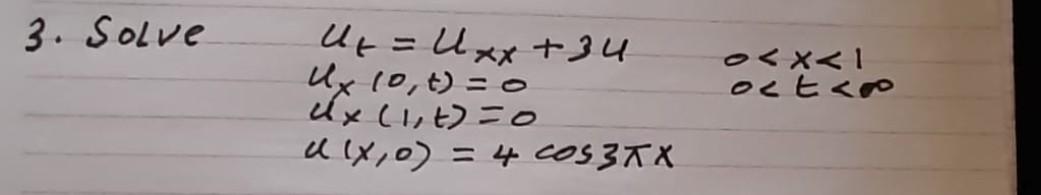 3. Solve u_t = u_xx + 3u 0<x<1
u_x (0,t) = 0 0<t<∞
u_x (1,t) = 0
u(x,0) = 4 cos3πx